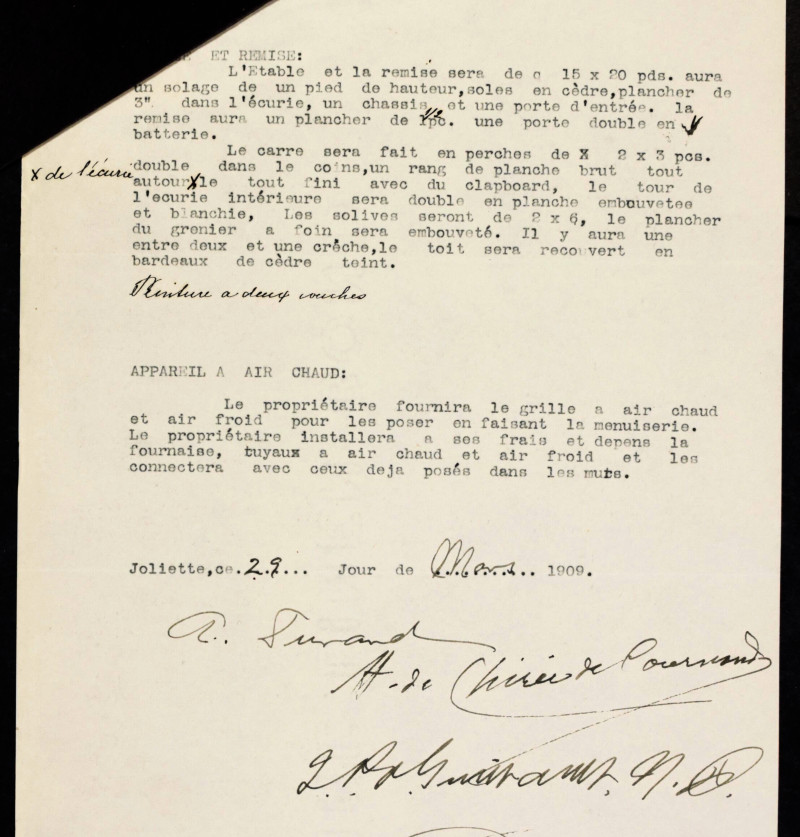 ET REMISE:
L'Etable et la remise sera de 15 x 20 pds. aura
un solage de un pied de hauteur,soles en cèdre,plancher de
3" dans l'écurie, un chassis et une porte d'entrée. la
remise aura un plancher de 1pc. une porte double en
batterie.
Le carre sera fait en perches de X 2 x 3 pcs.
X de l'écurie double dans le coins,un rang de planche brut tout
autour X le tout fini avec du clapboard, le tour de
l'ecurie intérieure sera double en planche embouvetee
et blanchie, Les solives seront de 2 x 6, le plancher
du grenier a foin sera embouveté. Il y aura une
entre deux et une crêche,le toit sera recouvert en
bardeaux de cèdre teint.
Peinture a deux couches
APPAREIL A AIR CHAUD:
Le propriétaire fournira le grille a air chaud
et air froid pour les poser en faisant la menuiserie.
Le propriétaire installera a ses frais et depens la
fournaise, tuyaux a air chaud et air froid et les
connectera avec ceux deja posés dans les murs.
Joliette,ce.29... Jour de Mars.. 1909.
A. Durand
H. de
N. P.